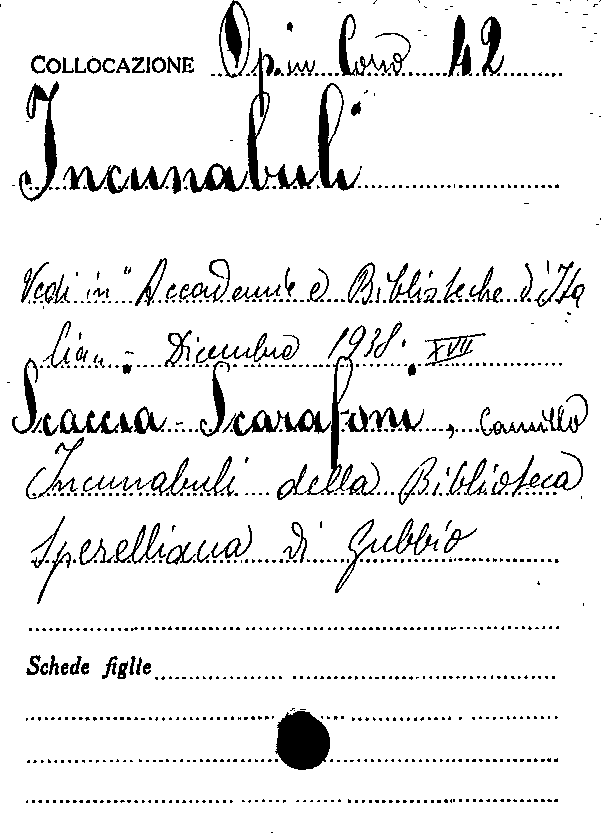 COLLOCAZIONE Op. in Corso 42
Incunabuli
Vedi in "Accademie e Biblioteche d'Ita
lia„ - Dicembre 1938. XVII
Scaccia - Scarafoni, Camillo
Incunabuli della Biblioteca
Sperelliana di Gubbio
Schede figlie